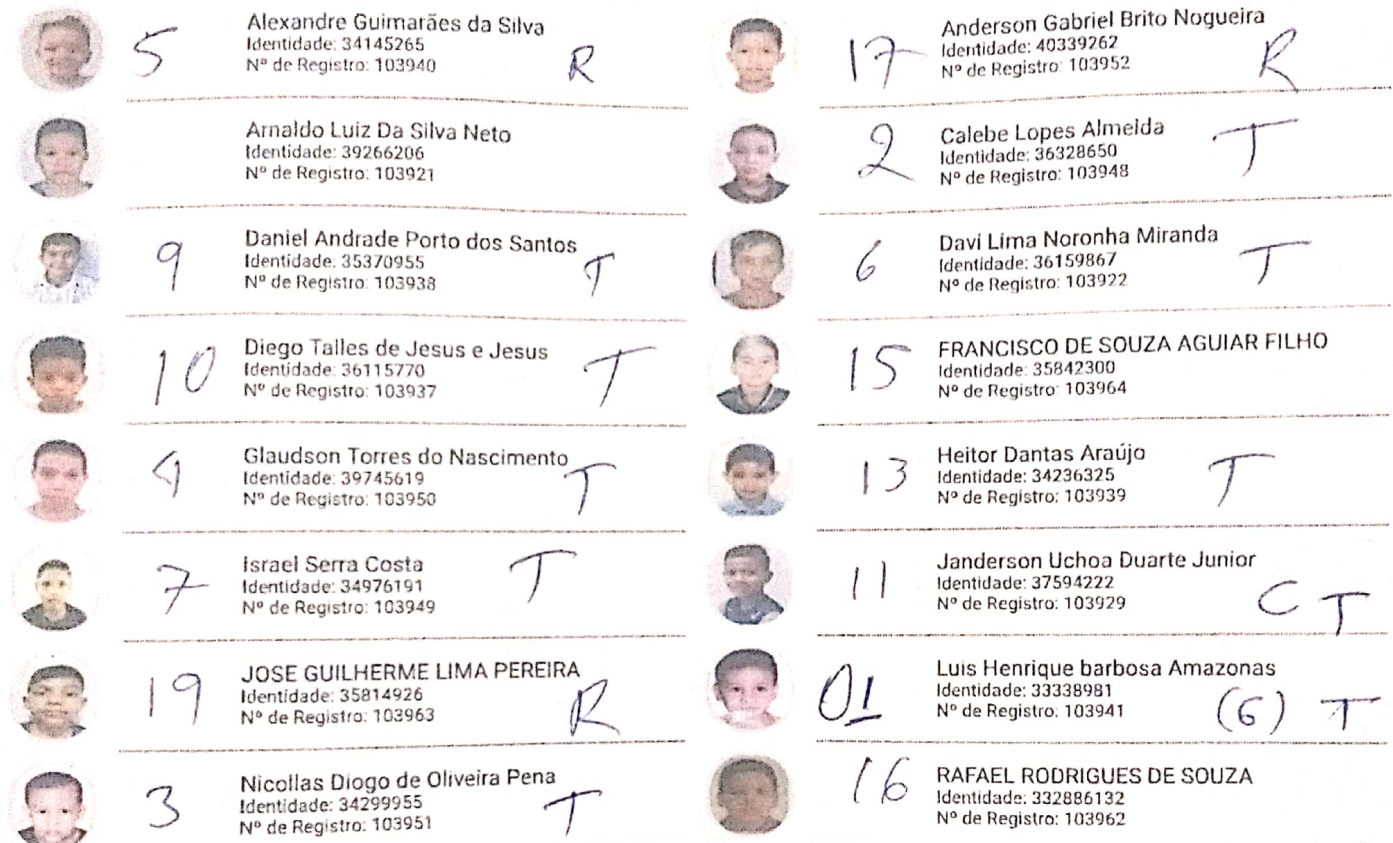 5 Alexandre Guimarães da Silva
Identidade: 34145265
Nº de Registro: 103940 R
Arnaldo Luiz Da Silva Neto
Identidade: 39266206
Nº de Registro: 103921
9 Daniel Andrade Porto dos Santos
Identidade: 35370955
Nº de Registro: 103938 T
10 Diego Talles de Jesus e Jesus
Identidade: 36115770
Nº de Registro: 103937 T
4 Glaudson Torres do Nascimento
Identidade: 39745619
Nº de Registro: 103950 T
7 Israel Serra Costa
Identidade: 34976191
Nº de Registro: 103949 T
19 JOSE GUILHERME LIMA PEREIRA
Identidade: 35814926
Nº de Registro: 103963 R
3 Nicollas Diogo de Oliveira Pena
Identidade: 34299955
Nº de Registro: 103951 T
17 Anderson Gabriel Brito Nogueira
Identidade: 40339262
Nº de Registro: 103952 R
2 Calebe Lopes Almeida
Identidade: 36328650
Nº de Registro: 103948 T
6 Davi Lima Noronha Miranda
Identidade: 36159867
Nº de Registro: 103922 T
15 FRANCISCO DE SOUZA AGUIAR FILHO
Identidade: 35842300
Nº de Registro: 103964
13 Heitor Dantas Araújo
Identidade: 34236325
Nº de Registro: 103939 T
11 Janderson Uchoa Duarte Junior
Identidade: 37594222
Nº de Registro: 103929 C T
01 Luis Henrique barbosa Amazonas
Identidade: 33338981
Nº de Registro: 103941 (G) T
16 RAFAEL RODRIGUES DE SOUZA
Identidade: 332886132
Nº de Registro: 103962